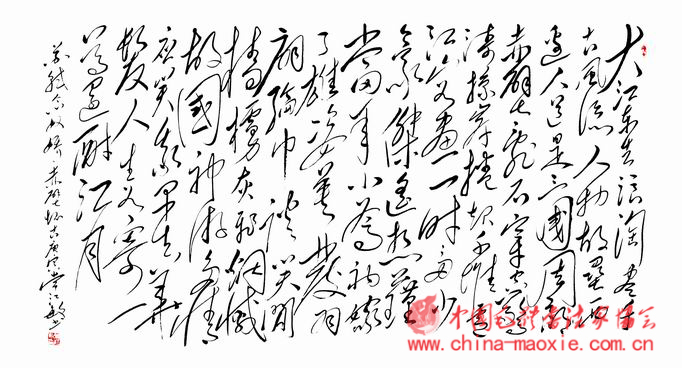 大江东去浪淘盡千
古风流人物故壘西
边人道是三國周郎
赤壁乱石穿空惊
涛拍岸捲起千堆雪
江山如画一时多少
豪傑遥想公瑾
当年小乔初嫁
了雄姿英发羽
扇纶巾谈笑间
樯橹灰飛烟灭
故國神游多情
应笑我早生华
髮人生如寄一
尊还酹江月
苏轼念奴娇赤壁怀古庚寅
www.china-maoxie.com.cn